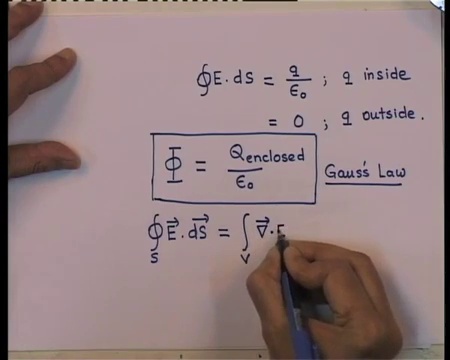 ∮E.dS = q/ε₀ ; q inside
= 0 ; q outside.
Φ = Qenclosed/ε₀ Gauss's Law
∮S E⃗.dS⃗ = ∫V ∇⃗.E